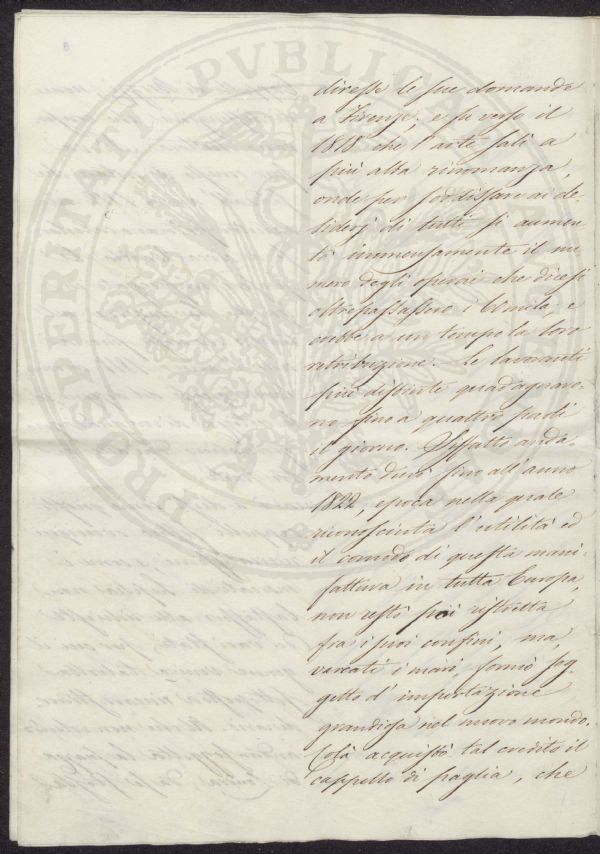 PROSPERITATI PVBLICAE
diresse le sue domande
a Firenze; e fu verso il
1818 che l'arte salì a
più alta rinomanza,
onde per soddisfare ai de-
siderj di tutti si aumen
tò immensamente il nu
mero degli operai che dicesi
oltrepassassero i 60 mila, e
crebbe a un tempo la loro
retribuzione. Le lavoranti
più distinte guadagnava-
no fino a quattro paoli
il giorno. Siffatto anda-
mento durò fino all'anno
1822, epoca nella quale
riconosciuta l'utilità ed
il comodo di questa mani-
fattura in tutta Europa,
non restò più ristretta
fra i suoi confini, ma,
varcati i mari, fornì sog-
getto d'importazione
grandiosa nel nuovo mondo.
Colà acquistò tal credito il
cappello di paglia, che